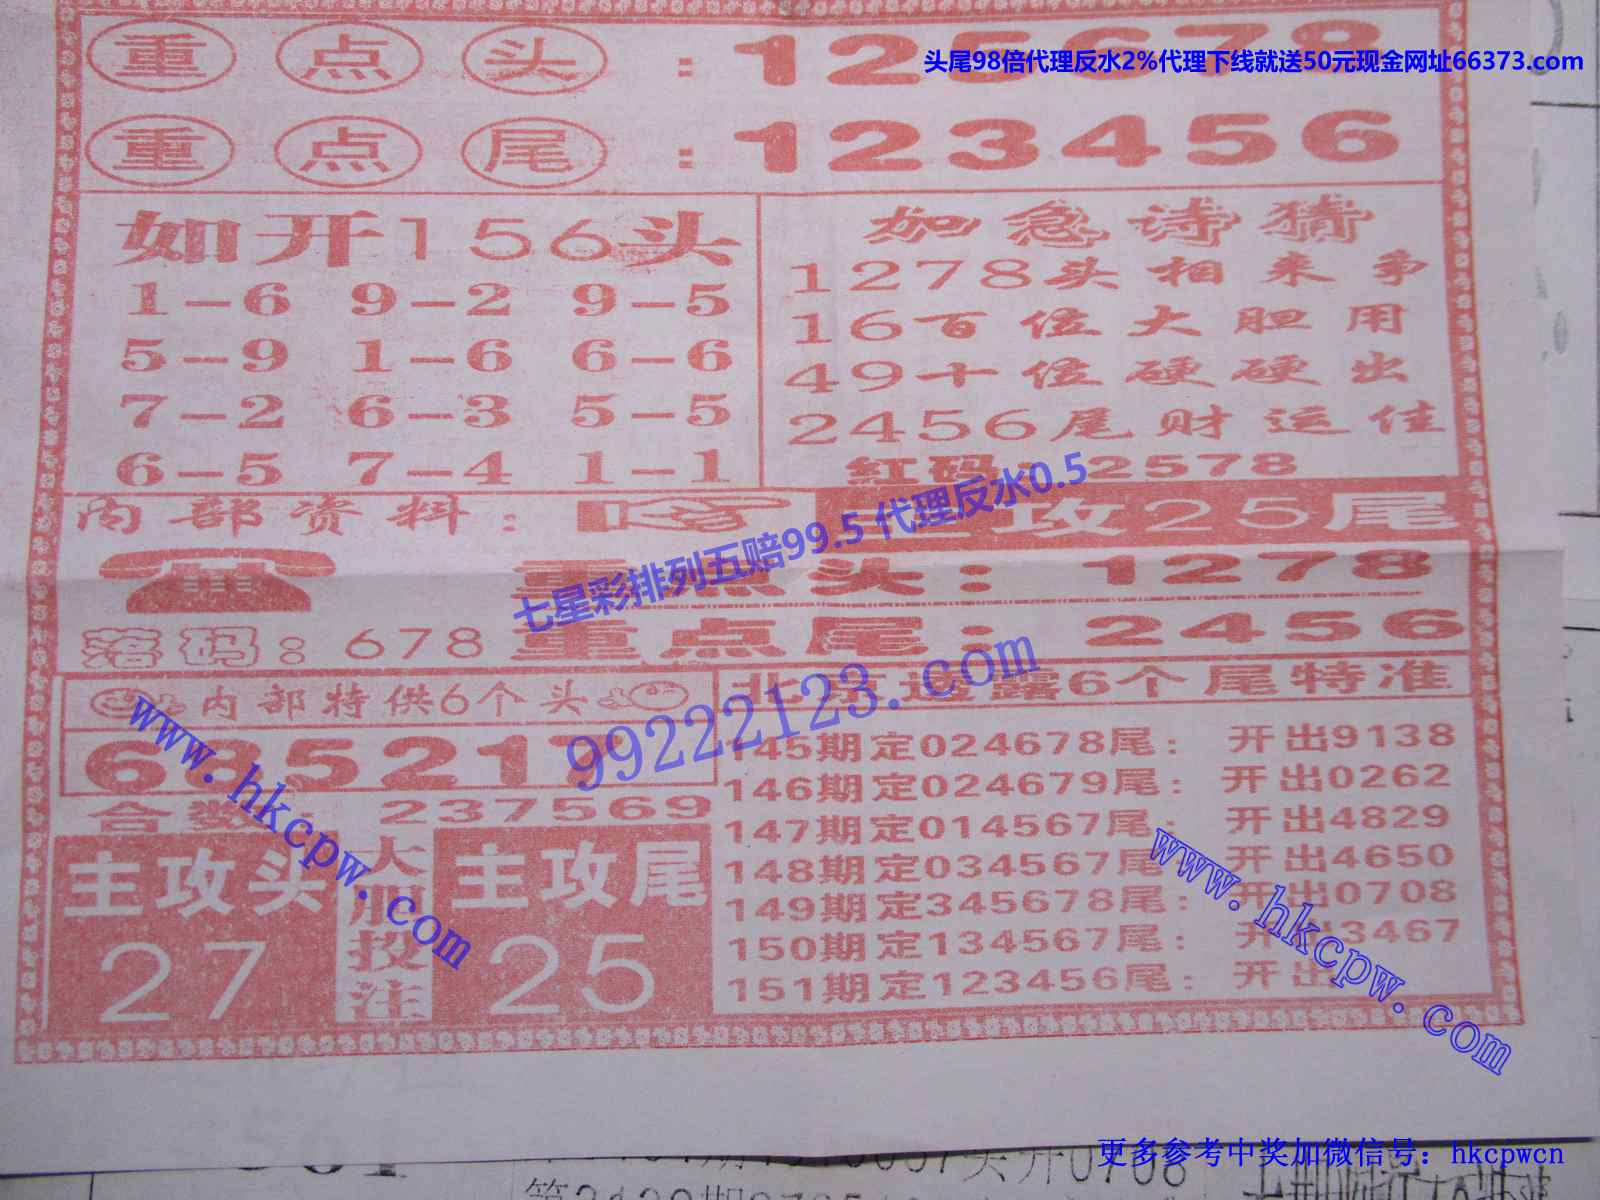 重点头：125678
头尾98倍代理反水2%代理下线就送50元现金网址66373.com
重点尾：123456
如开156头
1-6 9-2 9-5
5-9 1-6 6-6
7-2 6-3 5-5
6-5 7-4 1-1
如急诗猜
1278头相来争
16百位大胆用
49十位硬硬出
2456尾财运佳
红码：2578
内部资料：
攻25尾
七星彩排列五赔99.5 代理反水0.5
重点头：1278
落码：678
重点尾：2456
99222123.com
内部特供6个头
685217
合数：237569
主攻头
27
大胆投注
主攻尾
25
www.hkcpw.com
北京透露6个尾特准
145期定024678尾：开出9138
146期定024679尾：开出0262
147期定014567尾：开出4829
148期定034567尾：开出4650
149期定345678尾：开出0708
150期定134567尾：开出3467
151期定123456尾：开出
www.hkcpw.com
更多参考中奖加微信号：hkcpwcn